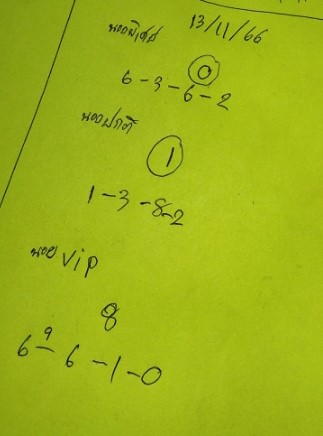 13/11/66
นอยพิเศษ
0
6-3-6-2
นอยปกติ
1
1-3-8-2
นอย vip
8
9
6-6-1-0